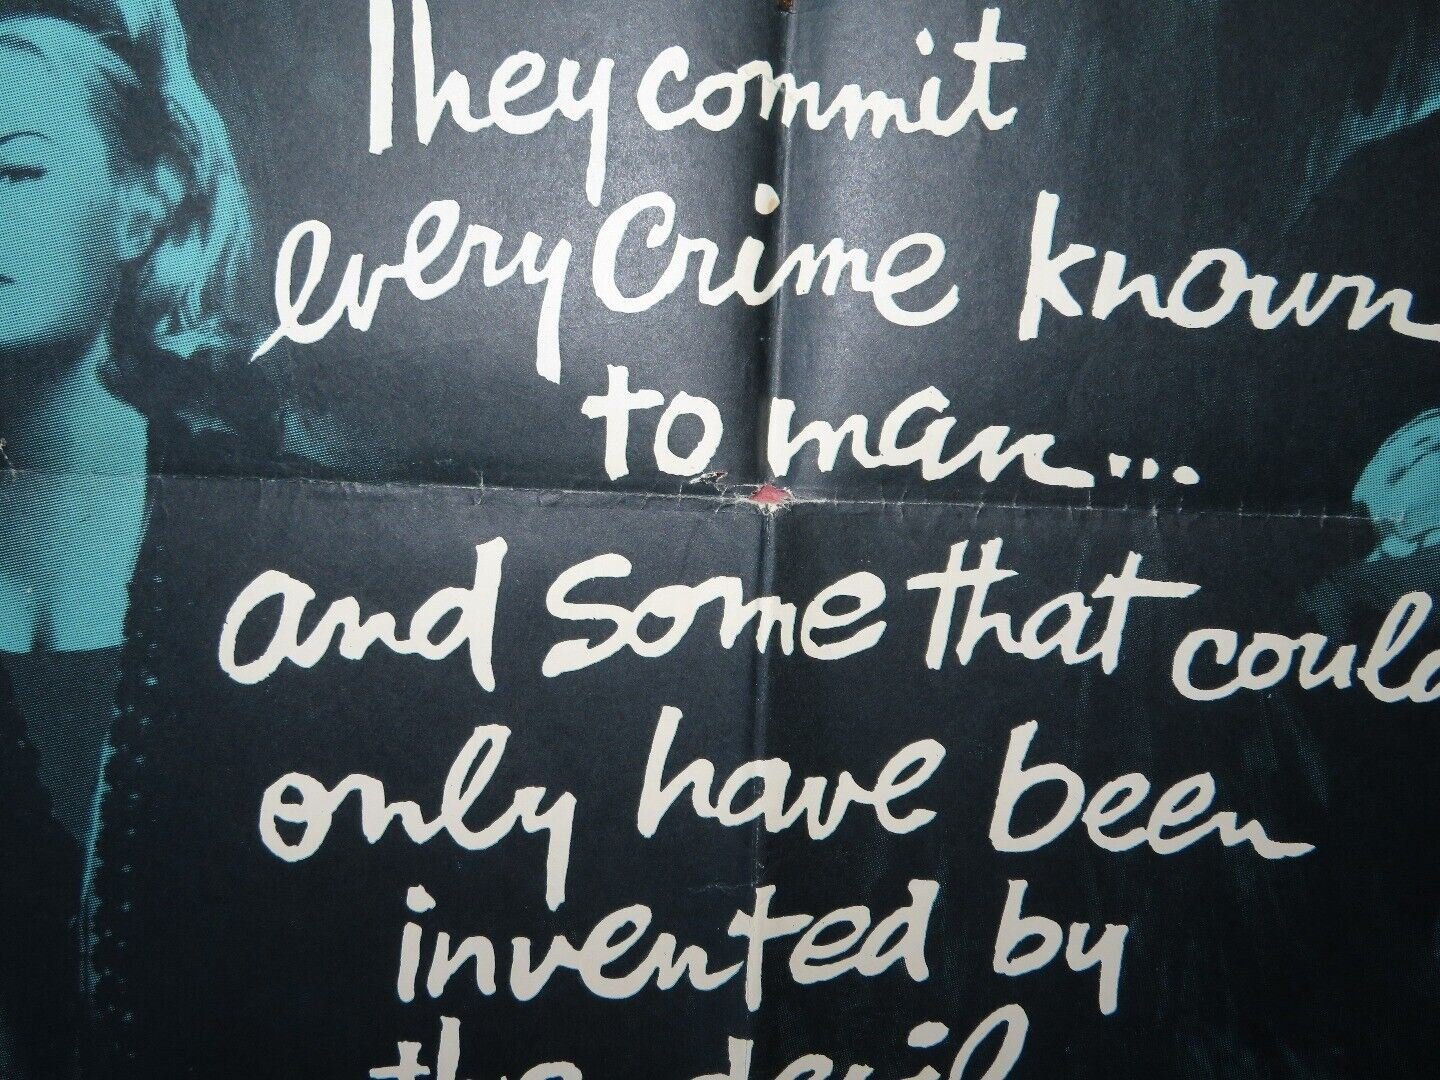 They commit
every Crime known
to man...
and some that could
only have been
invented by
the devil